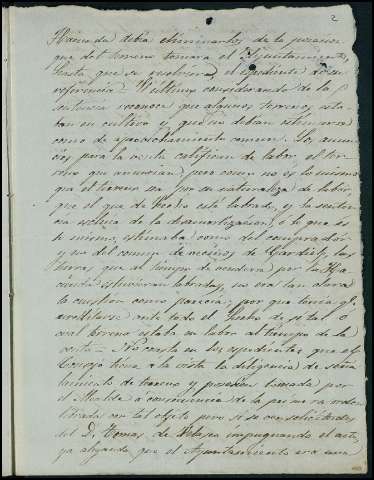 2
Hacienda debia eliminarlos de la posesion
que del terreno tomara el Ayuntamiento,
hasta que se resolviera el espediente de su
referencia. El ultimo considerando de la
sentencia reconoce que algunos terrenos esta
ban en cultivo y que no debian estimarse
como de aprovechamiento comun. Los anun
cios para la venta califican de labor, el ter
reno que anuncian; pero como no es lo mismo
que el terreno sea por su naturaleza de labor,
que el que de hecho esté labrado, y la senten
cia escluia de la desamortizacion, o lo que es
lo mismo, estimaba como del comprador
y no del comun de vecinos de las
tierras que al tiempo de venderse por la Ha
cienda estuvieran labradas, no era tan clara
la cuestion como parecia; por que tenia que
acreditarse ante todo el hecho de si tal o
cual terreno estaba en labor al tiempo de la
venta = No consta en los espedientes que el
Consejo tiene a la vista la diligencia de seña
lamiento de terreno y posesion tomada por
el Alcalde a consecuencia de la primera orden
librada con tal objeto pero si se ven solicitudes
del D. Tomas de Velasco impugnando el acto,
ya alegando que el Ayuntamiento era una